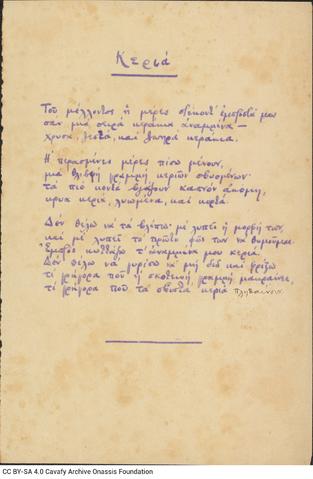 Κεριά
Του μέλλοντος η μέρες στέκοντ' εμπροστά μου
σαν μια σειρά κεράκια αναμμένα —
χρυσά, ζεστά, και ζωηρά κεράκια.
Η περασμένες μέρες πίσω μένουν,
μια θλιβερή γραμμή κεριών σβυσμένων·
τα πιο κοντά βγάζουν καπνόν ακόμη,
κρύα κεριά, λυωμένα, και κυρτά.
Δεν θέλω να τα βλέπω· με λυπεί η μορφή των,
και με λυπεί το πρώτο φως των να θυμούμαι.
Εμπρός κυττάζω τ' αναμμένα μου κεριά.
Δεν θέλω να γυρίσω να μη διω και φρίξω
τι γρήγορα που η σκοτεινή γραμμή μακραίνει,
τι γρήγορα που τα σβυστά κεριά πληθαίνουν.
CC BY-SA 4.0 Cavafy Archive Onassis Foundation